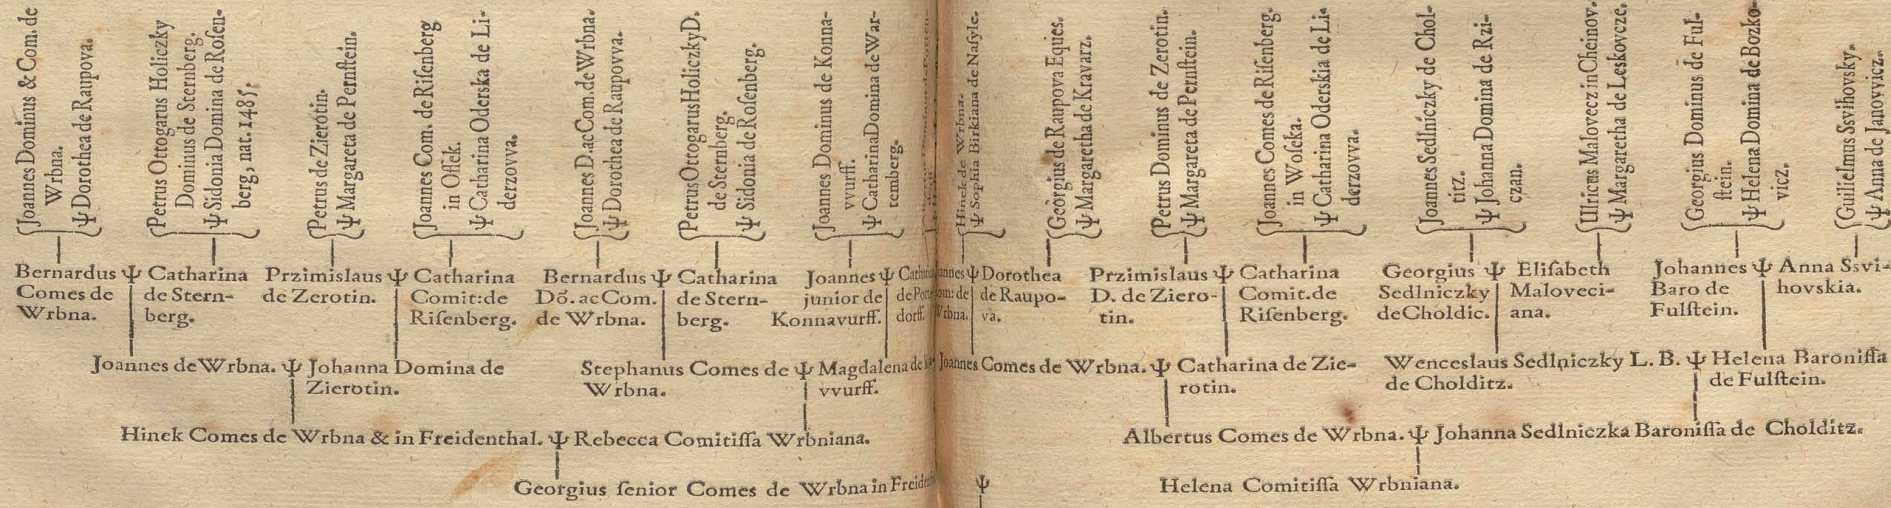 Joannes Dominus & Com. de
Wrbna.
Ψ Dorothea de Raupova.
Petrus Ottogarus Holiczky
Dominus de Sternberg.
Ψ Sidonia Domina de Rosen-
berg, nat. 1485.
Petrus de Zierotin.
Ψ Margareta de Pernſtein.
Joannes Com. de Riſenberg
in Oſſek.
Ψ Catharina Oderska de Li-
derzovva.
Joannes D. ac Com. de Wrbna.
Ψ Dorothea de Raupova.
Petrus Ottogarus Holiczky D.
de Sternberg.
Ψ Sidonia de Roſenberg.
Joannes Dominus de Konna-
vvurff.
Ψ Catharina Domina de War-
temberg.
Hinek de Wrbna.
Ψ Sophia Birkiana de Naſyle.
Georgius de Raupova Eques.
Ψ Margaretha de Kravarz.
Petrus Dominus de Zerotin.
Ψ Margareta de Pernſtein.
Joannes Comes de Riſenberg.
in Woſeka.
Ψ Catharina Oderskia de Li-
derzovva.
Joannes Sedlniczky de Chol-
titz.
Ψ Johanna Domina de Rzi-
czan.
Ulricus Malovecz in Cheinov.
Ψ Margaretha de Leskovcze.
Georgius Dominus de Ful-
ſtein.
Ψ Helena Domina de Bozko-
vicz.
Guilielmus Ssvihovsky.
Ψ Anna de Janovvicz.
Bernardus Ψ Catharina
Comes de de Stern-
Wrbna. berg.
Przimislaus Ψ Catharina
de Zerotin. Comit: de
Riſenberg.
Bernardus Ψ Catharina
Dō. ac Com. de Stern-
de Wrbna. berg.
Joannes Ψ
junior de
Konnavurff. dorff.
Ψ Dorothea
de Raupo-
Wrbna. va.
Przimislaus Ψ Catharina
D. de Ziero- Comit. de
tin. Riſenberg.
Georgius Ψ Eliſabeth
Sedlniczky Maloveci-
de Choldic. ana.
Johannes Ψ Anna Ssvi-
Baro de hovskia.
Fulſtein.
Joannes de Wrbna. Ψ Johanna Domina de
Zierotin.
Stephanus Comes de Ψ Magdalena de
Wrbna. vvurff.
Joannes Comes de Wrbna. Ψ Catharina de Zie-
rotin.
Wenceslaus Sedlniczky L. B. Ψ Helena Baroniſſa
de Cholditz. de Fulſtein.
Hinek Comes de Wrbna & in Freidenthal. Ψ Rebecca Comitiſſa Wrbniana.
Albertus Comes de Wrbna. Ψ Johanna Sedlniczka Baroniſſa de Cholditz.
Georgius ſenior Comes de Wrbna in Ψ Helena Comitiſſa Wrbniana.